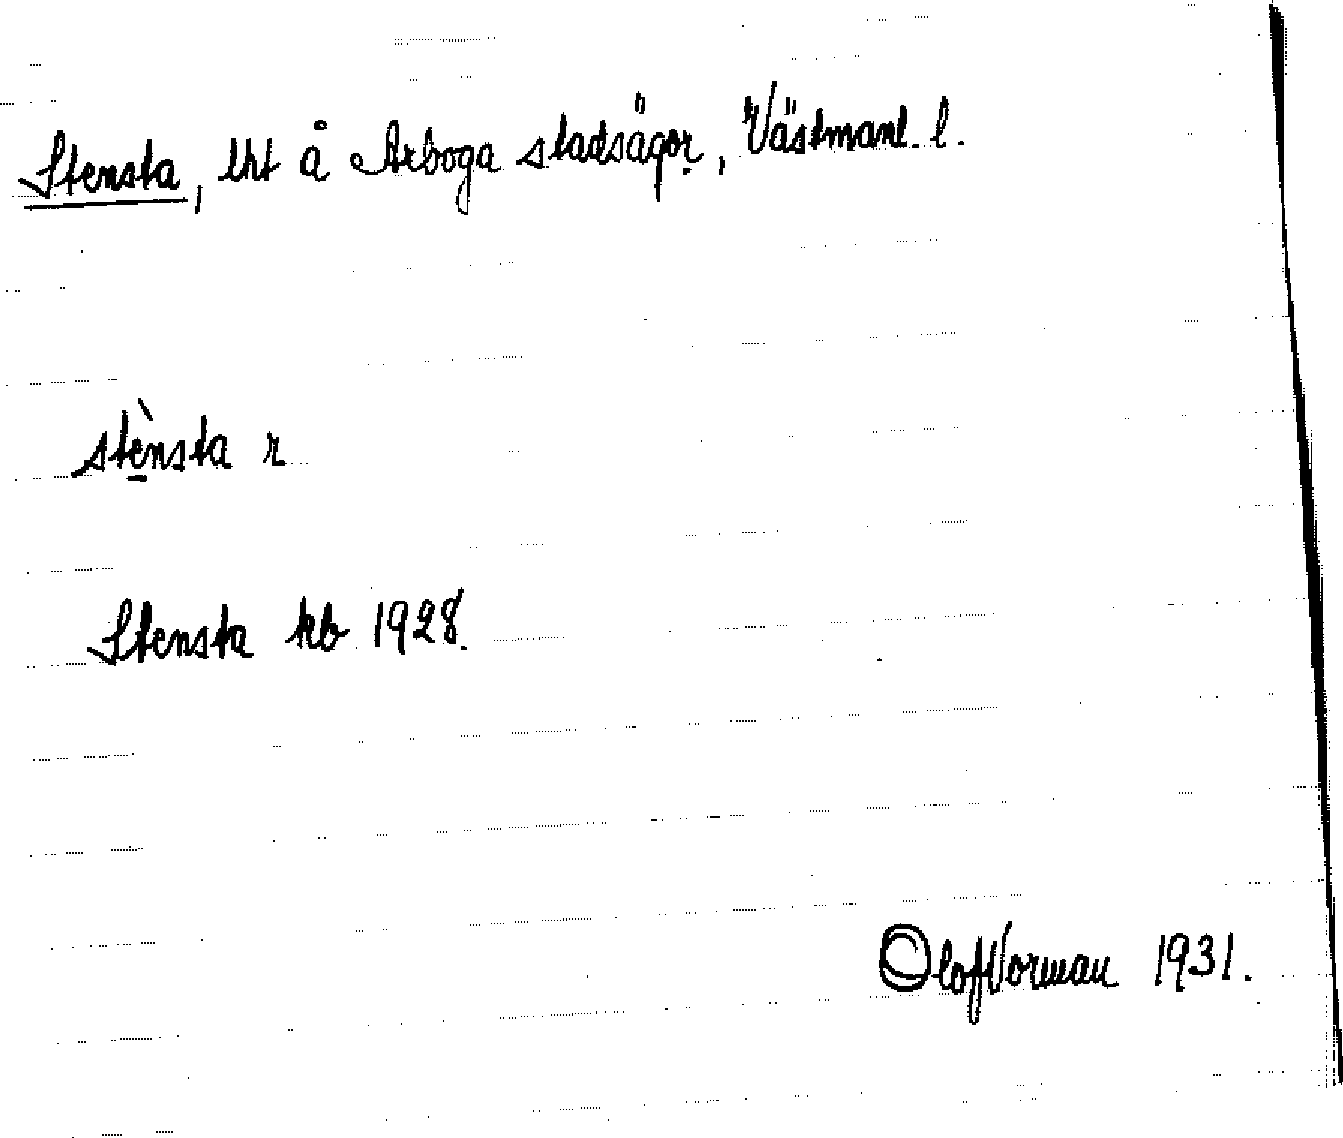 Stensta, lht å Arboga stadsägor, Västmanl. l.
stènsta r
Stensta kb 1928.
Olof Norman 1931.